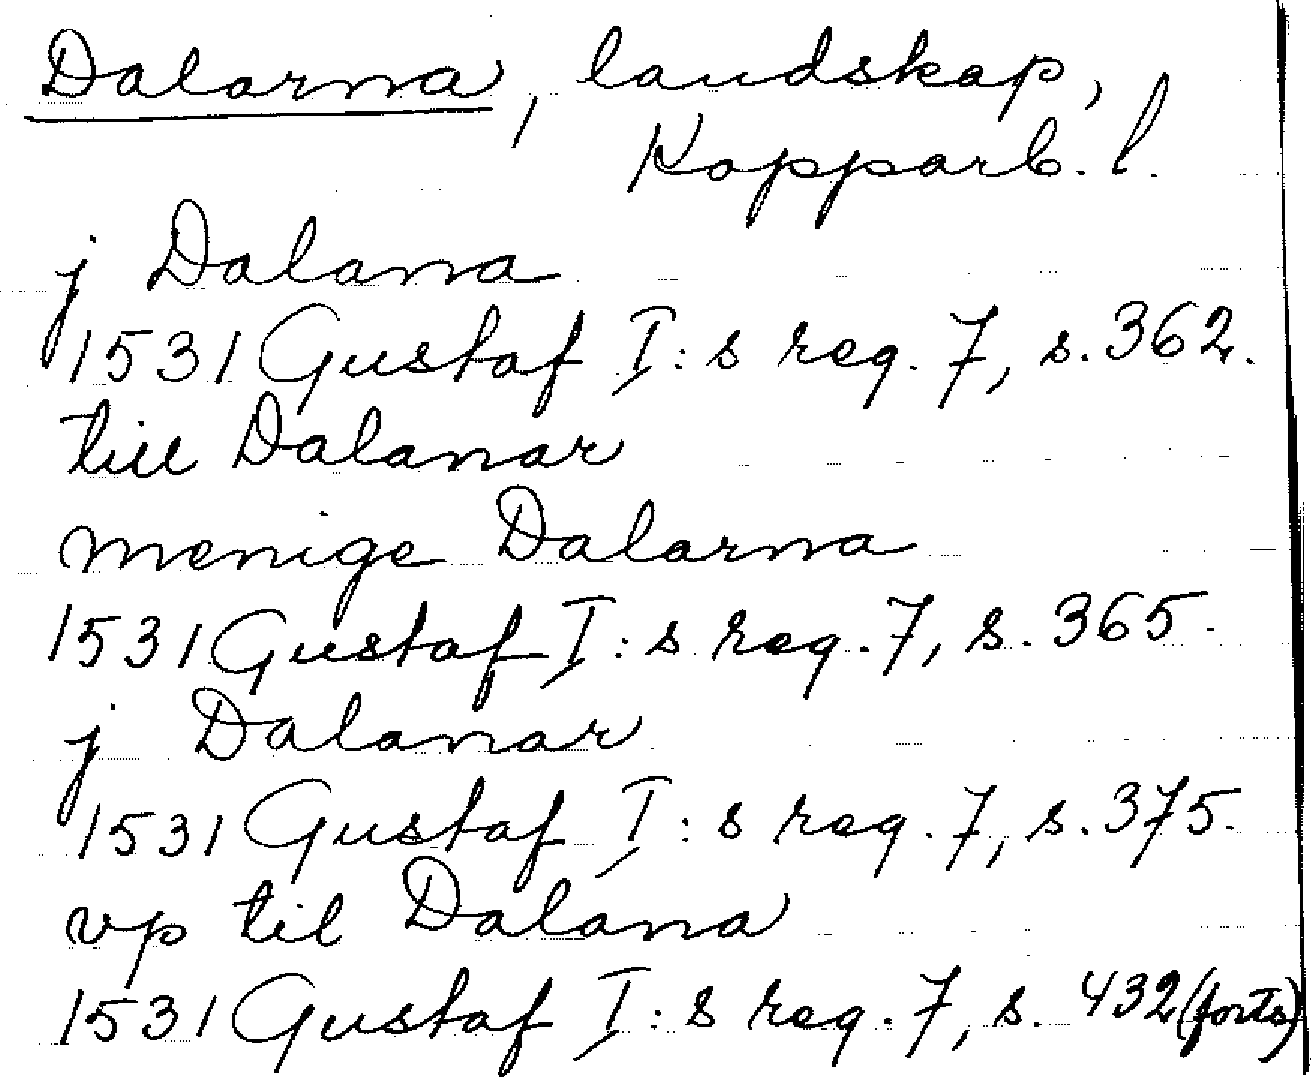 Dalarna, landskap,
Kopparb. l.
j Dalana
1531 Gustaf I:s reg. 7, s. 362.
till Dalanar
menige Dalarna
1531 Gustaf I:s reg. 7, s. 365.
j Dalanar
1531 Gustaf I:s reg. 7, s. 375.
vp til Dalana
1531 Gustaf I:s reg. 7, s. 432 (forts)